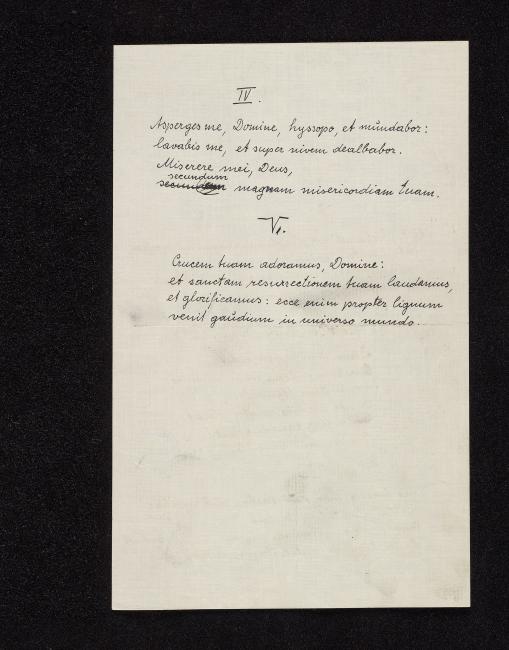 IV.
Asperges me, Domine, hyssopo, et mundabor:
lavabis me, et super nivem dealbabor.
Miserere mei, Deus,
secundum
magnam misericordiam tuam.
V.
Crucem tuam adoramus, Domine:
et sanctam resurrectionem tuam laudamus,
et glorificamus: ecce enim propter lignum
venit gaudium in universo mundo.